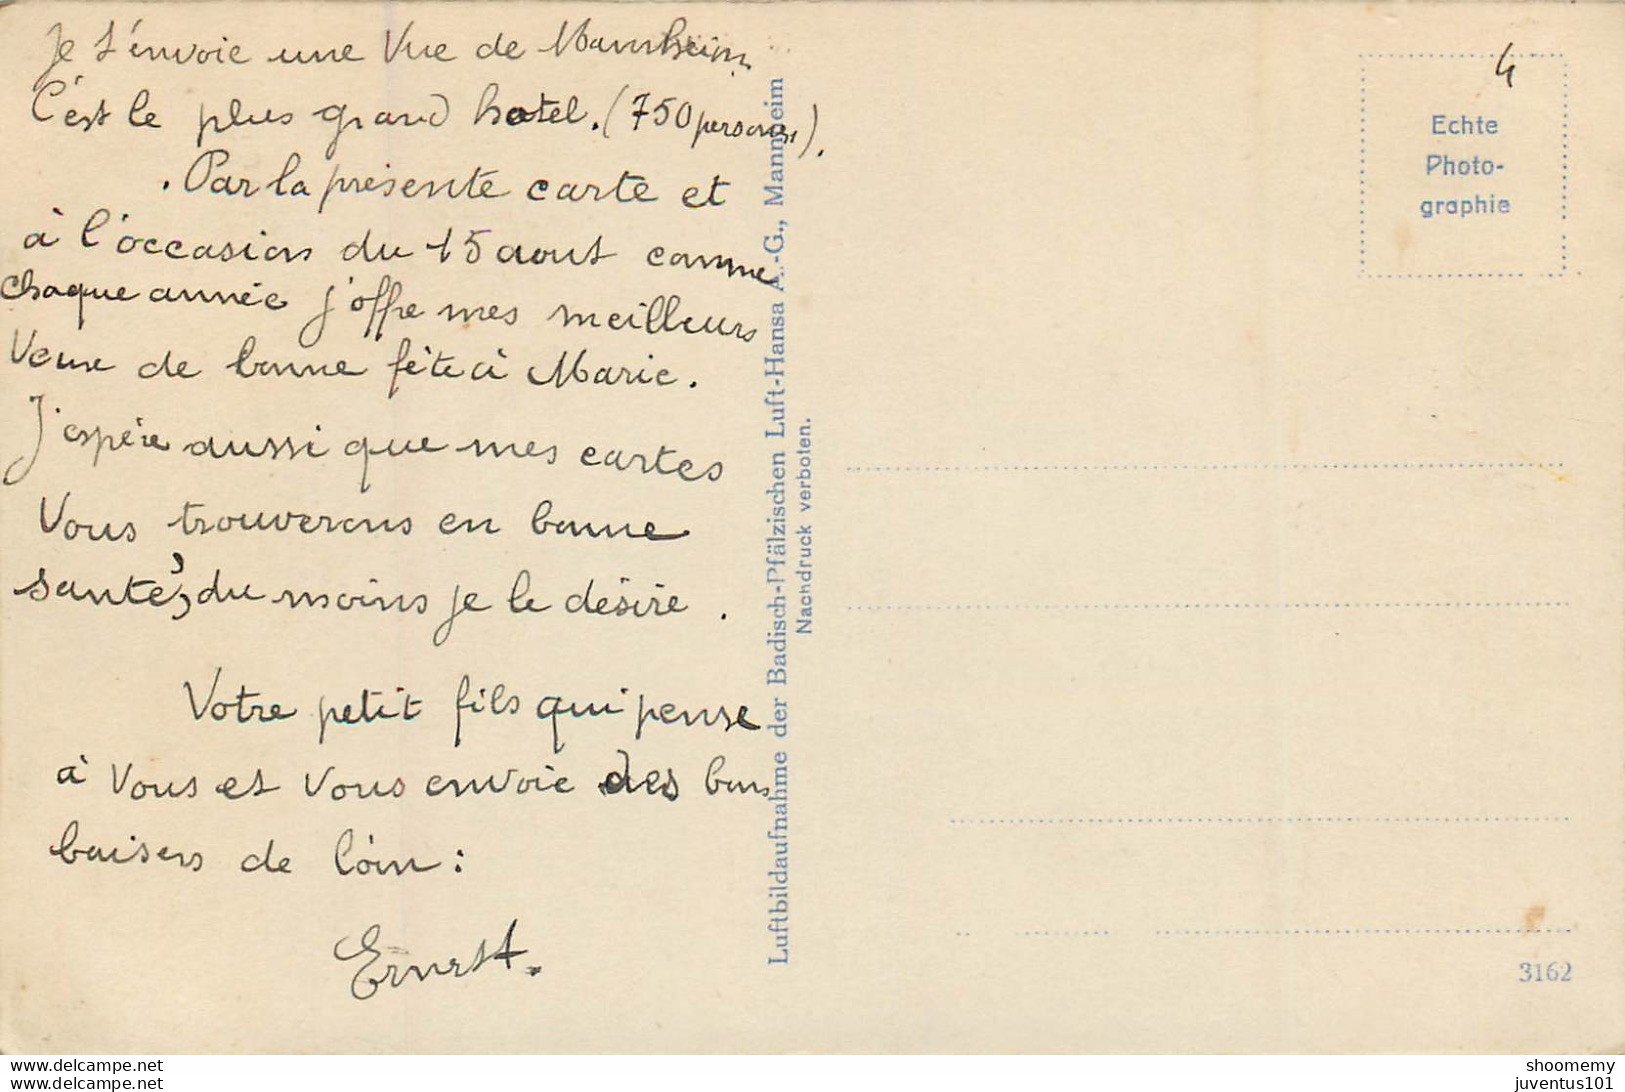 Je t'envoie une Vue de Mannheim.
C'est le plus grand hotel. (750 personnes).
. Par la présente carte et
à l'occasion du 15 aout comme
chaque année j'offre mes meilleurs
Veux de bonne fête à Marie.
J'espère aussi que mes cartes
Vous trouverons en bonne
santé, du moins je le désire.
Votre petit fils qui pense
à Vous et Vous envoie des bons
baisers de loin :
Ernest.
Luftbildaufnahme der Badisch-Pfälzischen Luft-Hansa A.-G., Mannheim
Nachdruck verboten.
4
Echte
Photo-
graphie
3162
delcampe.net
delcampe.net
shoomemy
juventus101